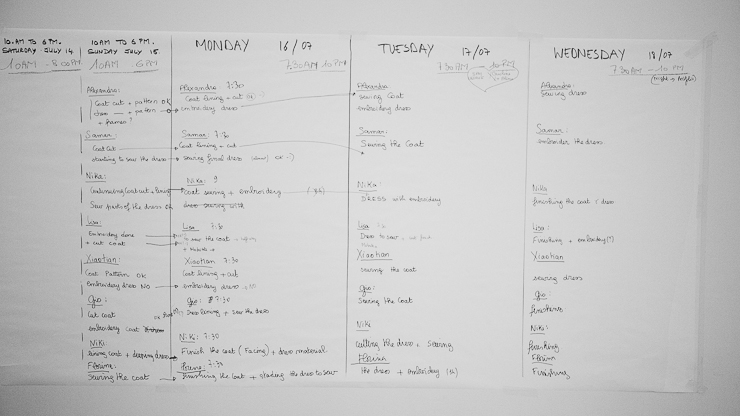 10.AM TO 6 PM.
SATURDAY JULY 14
10AM - 8:00PM
10AM TO 6 PM.
SUNDAY JULY 15.
10AM 6PM
Alexandre:
Coat cut + pattern OK
pattern
+ frames?
Samar:
Coat cut
starting to sew the dress
Nika:
Continuing coat cut + lining
Sew parts of the dress OK
Lisa:
Embroidery done
+ cut coat
Xiaotian:
Coat Pattern OK
embroidery dress NO
Gio:
Cut coat
embroidery coat
Niki:
lining coat + draping dress
Florine:
Sewing the coat
MONDAY 16/07
7:30AM 10PM
Alexandre 7:30
Coat lining + cut OK
embroidery dress
Samar: 7:30
Coat lining + cut
sewing final dress
Nika: 9
Coat sewing + embroidery
dress sewing with
Lisa 7:30
sew the coat
Xiaotian 7:30
Coat lining + cut
embroidery dress
Gio: 7:30
Dress lining + sew the dress
Niki: 7:30
Finish the coat (Facing) + dress material
Florine: 7:30
finishing the coat + starting the dress to sew
TUESDAY 17/07
7:30AM 10PM
Alexandre
Sewing Coat
embroidery dress
Samar:
Sewing the Coat
Nika:
DRESS with embroidery
Lisa
Dress to sew
Xiaotian
sewing the coat
Gio:
Sewing the Coat
Niki
cutting the dress + sewing
Florine
the dress + embroidery
WEDNESDAY 18/07
7:30AM - 10PM
Alexandre:
Sewing dress
Samar:
embroider the dress
Nika
finishing the coat / dress
Lisa:
Finishing + embroidery(?)
Xiaotian
sewing dress
Gio:
finishing
Niki:
finishing
Florine
Finishing